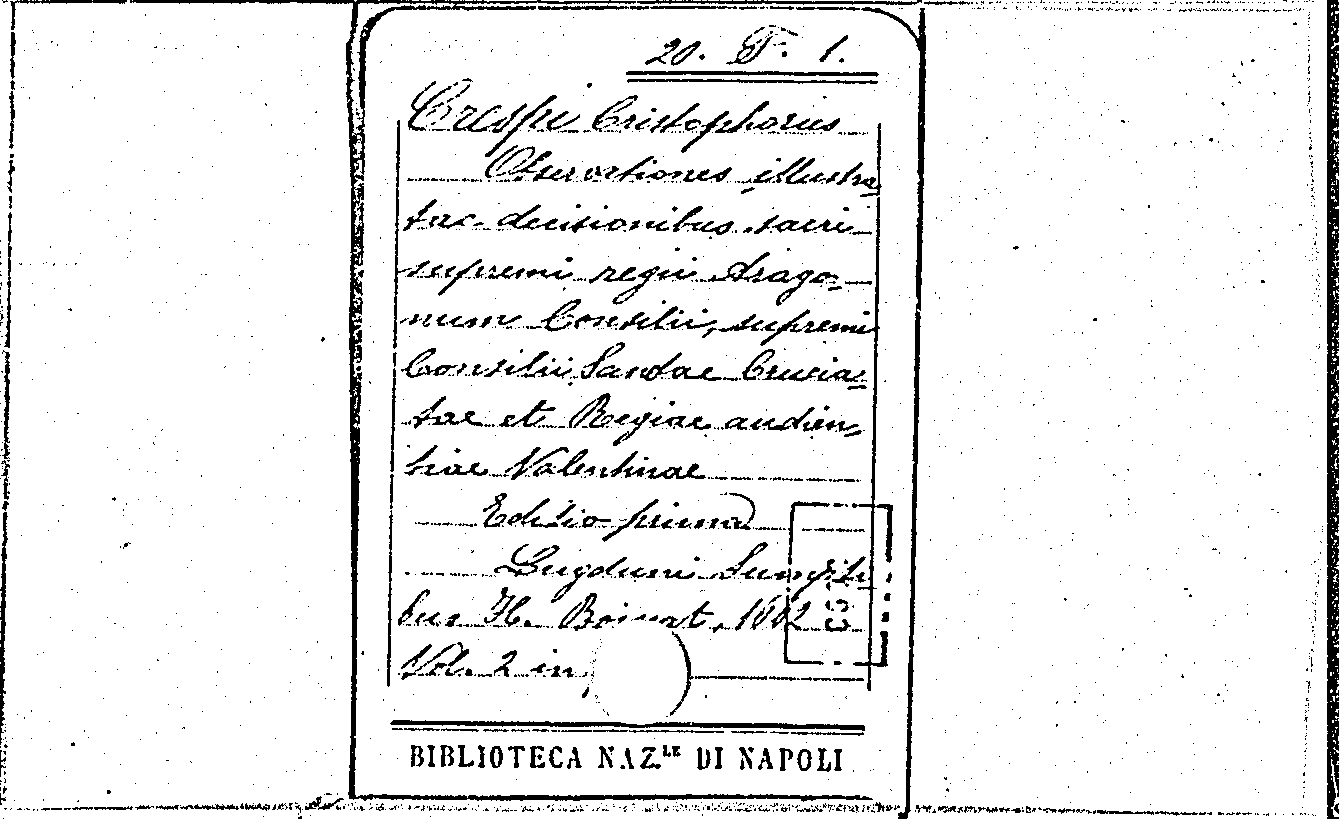 20. F. 1.
Crespi Cristophorus
Observationes illustra=
tae decisionibus sacri
supremi regii Arago=
num Consilii, supremi
Consilii Sanctae Crucia=
tae et Regiae audien=
tiae Valentinae
Editio prima
Lugduni Sumpti
bus H. Boissat, 1662
Vol. 2 in
BIBLIOTECA NAZ.LE DI NAPOLI